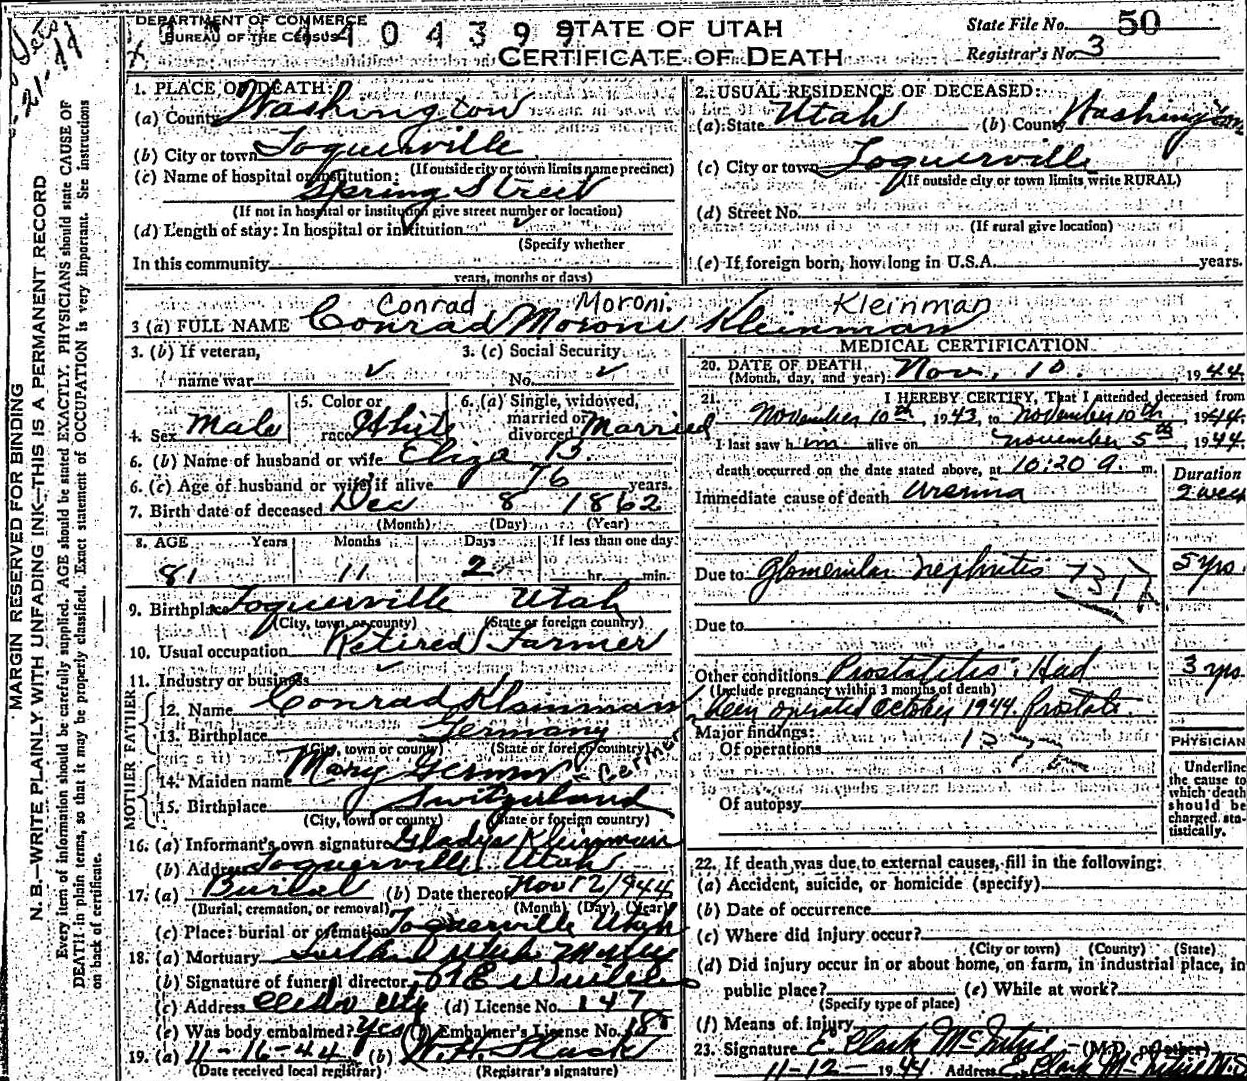 DEPARTMENT OF COMMERCE
BUREAU OF THE CENSUS
440439
STATE OF UTAH
CERTIFICATE OF DEATH
State File No. 50
Registrar's No. 3
MARGIN RESERVED FOR BINDING
N. B.—WRITE PLAINLY WITH UNFADING INK—THIS IS A PERMANENT RECORD
Every item of information should be carefully supplied. AGE should be stated EXACTLY. PHYSICIANS should state CAUSE OF
DEATH in plain terms, so that it may be properly classified. Exact statement of OCCUPATION is very important. See instructions
on back of certificate.
1. PLACE OF DEATH:
(a) County Washington
(b) City or town Toquerville
(If outside city or town limits name precinct)
(c) Name of hospital or institution:
Spring Street
(If not in hospital or institution give street number or location)
(d) Length of stay: In hospital or institution
(Specify whether
In this community
years, months or days)
2. USUAL RESIDENCE OF DECEASED:
(a) State Utah (b) County Washington
(c) City or town Toquerville
(If outside city or town limits, write RURAL)
(d) Street No.
(If rural give location)
(e) If foreign born, how long in U.S.A. years.
Conrad Moroni Kleinman
3 (a) FULL NAME Conrad Moroni Kleinman
3. (b) If veteran, name war
3. (c) Social Security No.
4. Sex Male
5. Color or race White
6. (a) Single, widowed, married or divorced Married
6. (b) Name of husband or wife Eliza B.
6. (c) Age of husband or wife if alive 76 years.
7. Birth date of deceased Dec 8 1862
(Month) (Day) (Year)
8. AGE Years Months Days If less than one day
81 11 2 hr. min.
9. Birthplace Toquerville Utah
(City, town, or county) (State or foreign country)
10. Usual occupation Retired Farmer
11. Industry or business
FATHER
12. Name Conrad Kleinman
13. Birthplace Germany
(City, town or county) (State or foreign country)
MOTHER
14. Maiden name Mary Germer Germer
15. Birthplace Switzerland
(City, town or county) (State or foreign country)
16. (a) Informant's own signature Gladys Kleinman
(b) Address Toquerville Utah
17. (a) Burial (b) Date thereof Nov 12/1944
(Burial, cremation, or removal) (Month) (Day) (Year)
(c) Place: burial or cremation Toquerville Utah
18. (a) Mortuary
(b) Signature of funeral director
(c) Address Cedar City (d) License No. 147
(e) Was body embalmed? Yes (f) Embalmer's License No.
19. (a) 11-16-44 (b) W. H. Slack
(Date received local registrar) (Registrar's signature)
MEDICAL CERTIFICATION
20. DATE OF DEATH
(Month, day, and year) Nov. 10. 1944.
21. I HEREBY CERTIFY, That I attended deceased from
November 10th, 1943, to November 10th 1944.
I last saw him alive on November 5th, 1944
death occurred on the date stated above, at 10:20 a. m.
Duration
Immediate cause of death Uremia 2 week
Due to Glomerular Nephritis 5 yrs.
Due to
Other conditions Prostatitis: Had 3 yrs
(Include pregnancy within 3 months of death)
been operated October 1944. Prostate.
Major findings:
Of operations
Of autopsy
PHYSICIAN
Underline
the cause to
which death
should be
charged sta-
tistically.
22. If death was due to external causes, fill in the following:
(a) Accident, suicide, or homicide (specify)
(b) Date of occurrence
(c) Where did injury occur?
(City or town) (County) (State)
(d) Did injury occur in or about home, on farm, in industrial place, in
public place? (e) While at work?
(Specify type of place)
(f) Means of injury
23. Signature E. Clark McIntire (M.D.
11-12-1944 Address E. Clark McIntire M.D.